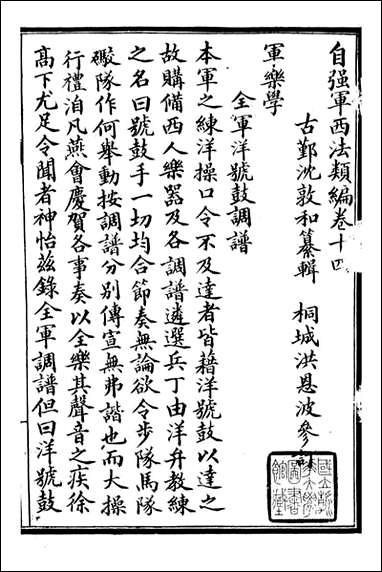 自强軍西法類編卷十四
古鄞沈敦和纂輯　桐城洪恩波參
軍樂學
全軍洋號鼓調譜
本軍之練洋操口令不及達者皆藉洋號鼓以達之
故購備西人樂器及各調譜遴選兵丁由洋弁教練
之名曰號鼓手一切均合節奏無論欲令步隊馬隊
礮隊作何舉動按調譜分別傳宣無弗諧也而大操
行禮洎凡燕會慶賀各事奏以全樂其聲音之疾徐
高下尤足令聞者神怡兹錄全軍調譜但曰洋號鼓